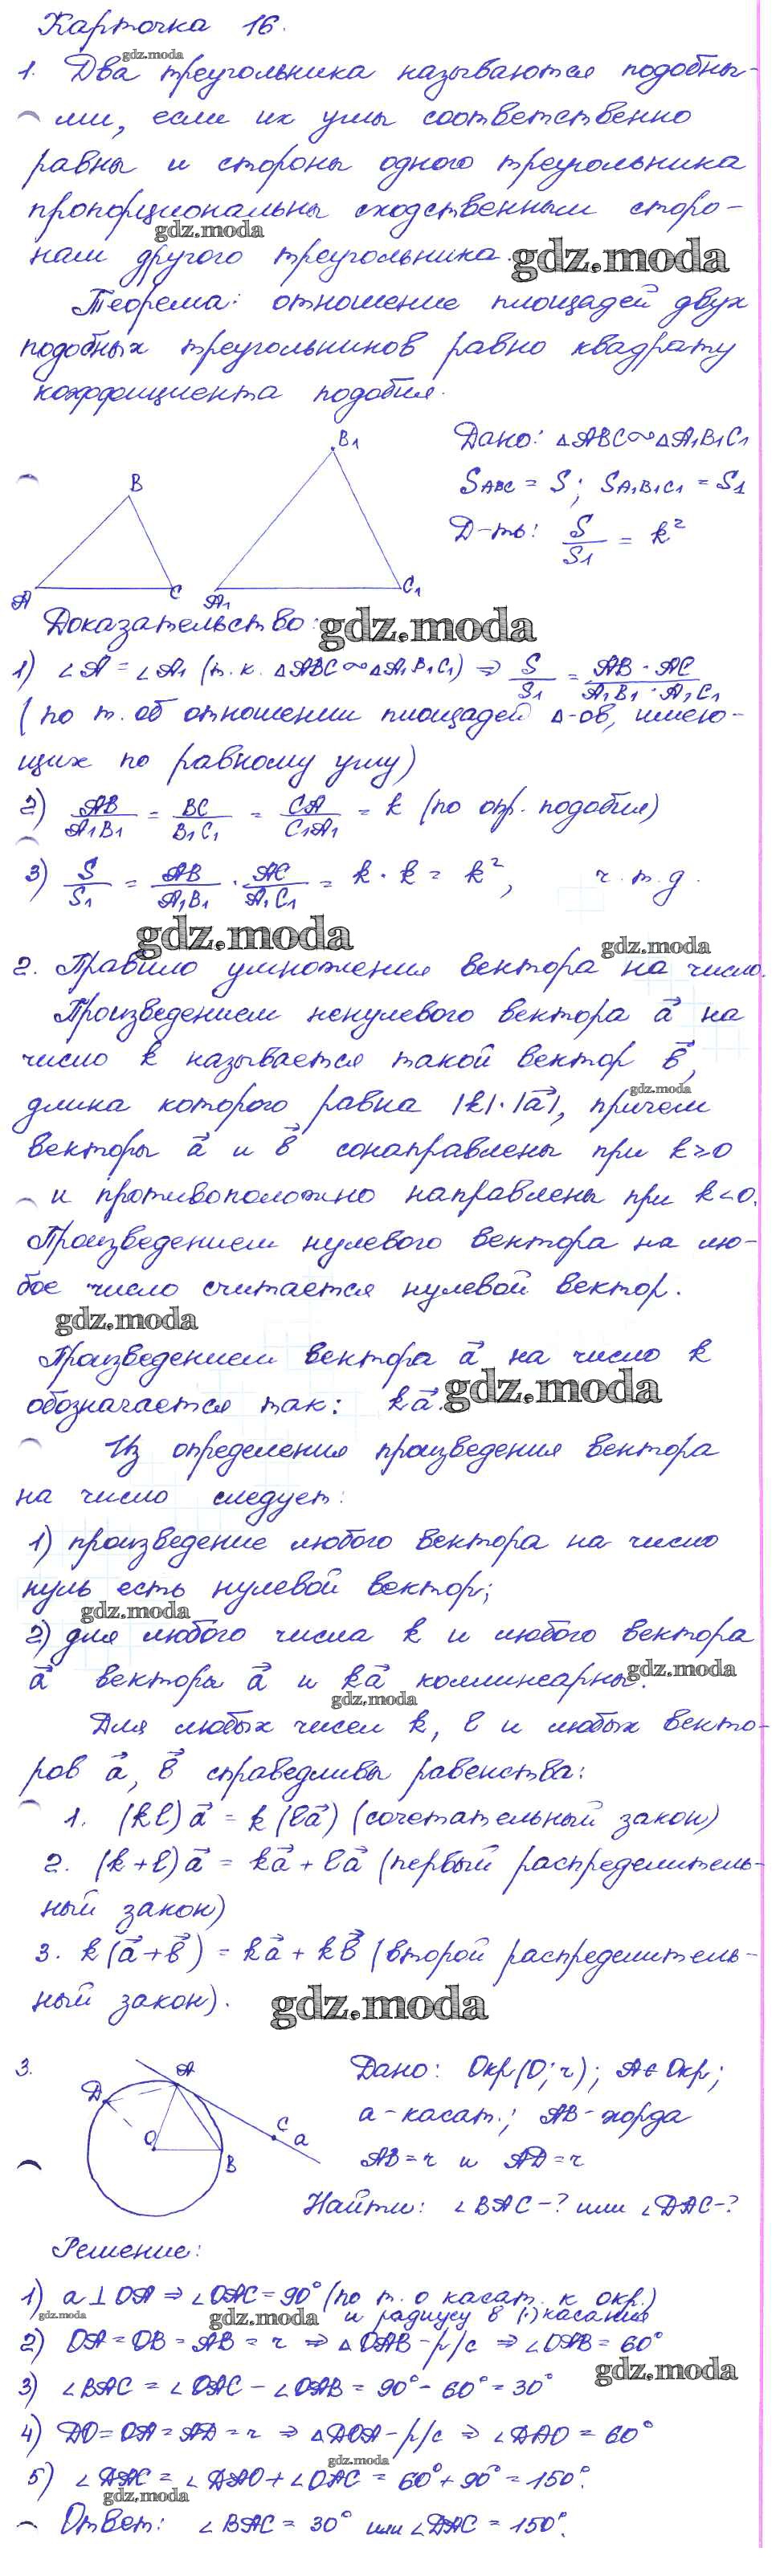 Карточка 16.
gdz.moda
1. Два треугольника называются подобны-
ми, если их углы соответственно
равны и стороны одного треугольника
пропорциональны сходственным сторо-
gdz.moda
нам другого треугольника.
gdz.moda
Теорема: отношение площадей двух
подобных треугольников равно квадрату
коэффициента подобия.
Дано: △ABC∾△A₁B₁C₁
S_ABC = S; S_A₁B₁C₁ = S₁
Д-ть: S/S₁ = k²
B
B₁
A C A₁ C₁
Доказательство:
gdz.moda
1) ∠A = ∠A₁ (т.к. △ABC∾△A₁B₁C₁) ⇒ S/S₁ = AB · AC / A₁B₁ · A₁C₁
(по т. об отношении площадей △-ов, имею-
щих по равному углу)
2) AB/A₁B₁ = BC/B₁C₁ = CA/C₁A₁ = k (по опр. подобия)
3) S/S₁ = AB/A₁B₁ · AC/A₁C₁ = k · k = k², ч.т.д.
gdz.moda
gdz.moda
2. Правило умножения вектора на число.
Произведением ненулевого вектора a⃗ на
число k называется такой вектор b⃗,
gdz.moda
длина которого равна |k|·|a⃗|, причем
векторы a⃗ и b⃗ сонаправлены при k≥0
и противоположно направлены при k<0.
Произведением нулевого вектора на лю-
бое число считается нулевой вектор.
gdz.moda
Произведением вектора a⃗ на число k
обозначается так: ka⃗.
gdz.moda
Из определения произведения вектора
на число следует:
1) произведение любого вектора на число
нуль есть нулевой вектор;
gdz.moda
2) для любого числа k и любого вектора
a⃗ векторы a⃗ и ka⃗ коллинеарны.
gdz.moda
gdz.moda
Для любых чисел k, l и любых векто-
ров a⃗, b⃗ справедливы равенства:
1. (kl)a⃗ = k(la⃗) (сочетательный закон)
2. (k+l)a⃗ = ka⃗ + la⃗ (первый распределитель-
ный закон)
3. k(a⃗+b⃗) = ka⃗ + kb⃗ (второй распределитель-
ный закон).
gdz.moda
3.
A
D
O
C
a
B
Дано: Окр(O; r); A∈Окр;
a-касат.; AB-хорда
AB=r и AD=r
Найти: ∠BAC-? или ∠DAC-?
Решение:
1) a⊥OA ⇒ ∠OAC = 90° (по т. о касат. к окр.)
gdz.moda
gdz.moda
и радиусу в (·) касания
2) OA = OB = AB = r ⇒ △OAB-р/с ⇒ ∠OAB = 60°
gdz.moda
3) ∠BAC = ∠OAC - ∠OAB = 90° - 60° = 30°
4) DO = OA = AD = r ⇒ △DOA-р/с ⇒ ∠DAO = 60°
gdz.moda
5) ∠DAC = ∠DAO + ∠OAC = 60° + 90° = 150°.
gdz.moda
Ответ: ∠BAC = 30° или ∠DAC = 150°.